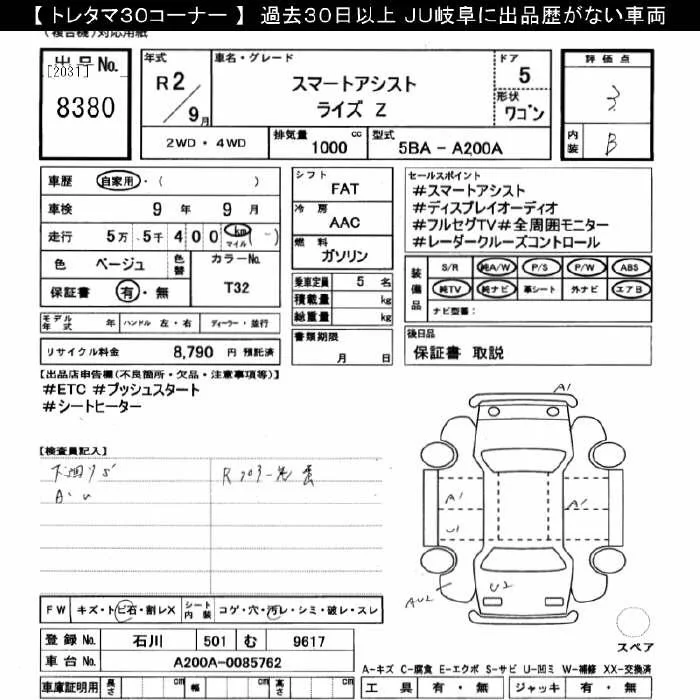 【 トレタマ30コーナー 】 過去30日以上 JU岐阜に出品歴がない車両
(複合機)対応用紙
出品No.
[2031]
8380
年式
R2/9月
車名・グレード
スマートアシスト
ライズ Z
ドア
5
形状
ワゴン
評価点
3
内装
B
2WD・4WD
排気量 1000 cc
型式 5BA - A200A
車歴 自家用・( )
車検 9年 9月
走行 5万 5千 400 km マイル ( - )
色 ベージュ 色替
カラーNo. T32
保証書 有・無
モデル年式 年 ハンドル 左・右 ディーラー・並行
リサイクル料金 8,790 円 預託済
シフト FAT
冷房 AAC
燃料 ガソリン
乗車定員 5 名
積載量 kg
総重量 kg
書類期限
月 日
セールスポイント
#スマートアシスト
#ディスプレイオーディオ
#フルセグTV#全周囲モニター
#レーダークルーズコントロール
装備品
S/R 純A/W P/S P/W ABS
純TV 純ナビ 革シート 外ナビ エアB
ナビ型番:
後日品
保証書 取説
【出品店申告欄(不良箇所・欠品・注意事項等)】
#ETC #プッシュスタート
#シートヒーター
【検査員記入】
下回りS
A・U
A1
A1
A1
U1
U2
AU2
FW キズ・トビ石・割レX シート内装 コゲ・穴・汚レ・シミ・破レ・スレ
登録No. 石川 501 む 9617
車台No. A200A-0085762
車庫証明用 長さ cm 幅 cm 高さ cm
スペア
A-キズ C-腐食 E-エクボ S-サビ U-凹ミ W-補修 XX-交換済
工具 有・無 ジャッキ 有・無